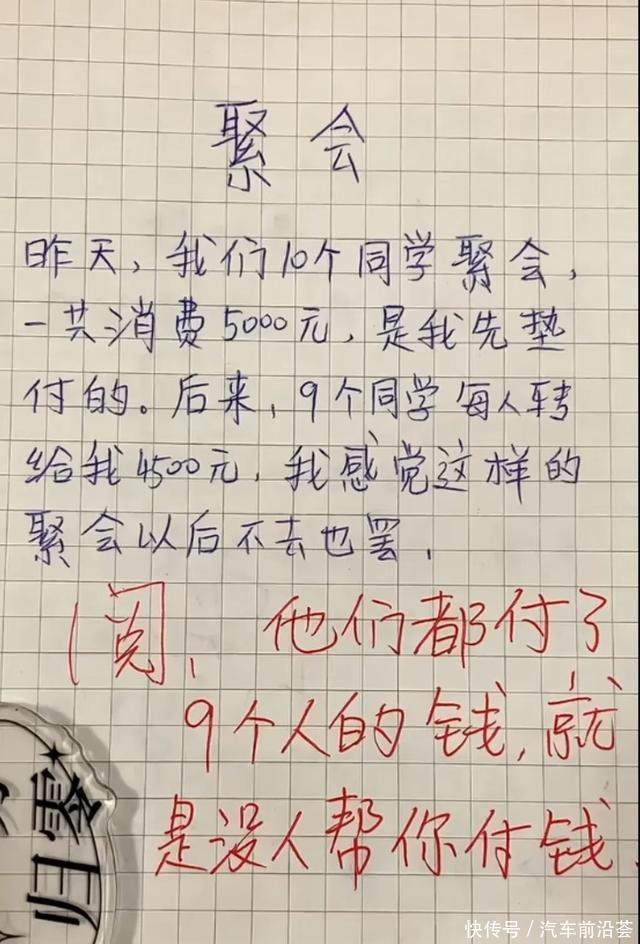 聚会
昨天，我们10个同学聚会，
一共消费5000元，是我先垫
付的。后来，9个同学每人转
给我4500元，我感觉这样的
聚会以后不去也罢．
阅、他们都付了
9个人的钱，就
是没人帮你付钱．
归零
快传号／汽车前沿荟